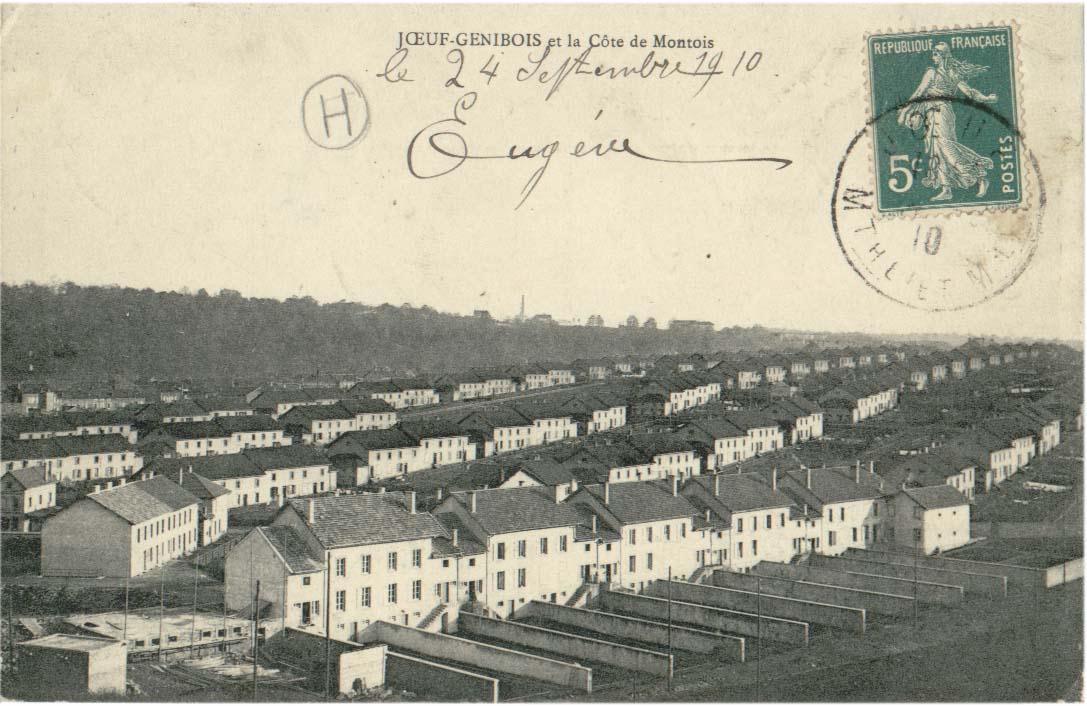 JŒUF-GENIBOIS et la Côte de Montois
le 24 Septembre 1910.
H
Eugéne
REPUBLIQUE FRANÇAISE
5c
POSTES
10